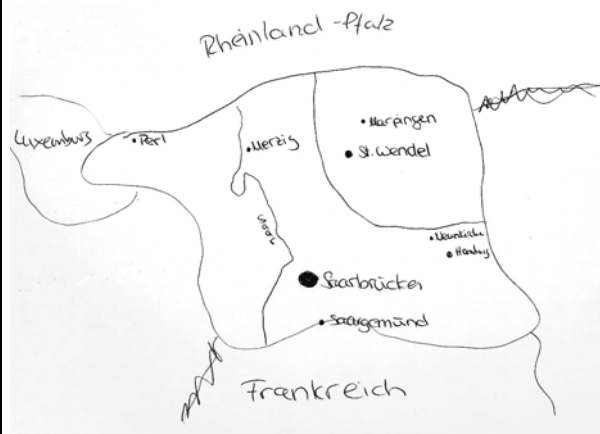 Rheinland-Pfalz
Luxemburg
Perl
Merzig
Marpingen
St. Wendel
Saar
Neunkirche
Homburg
Saarbrücken
Saargemünd
Frankreich